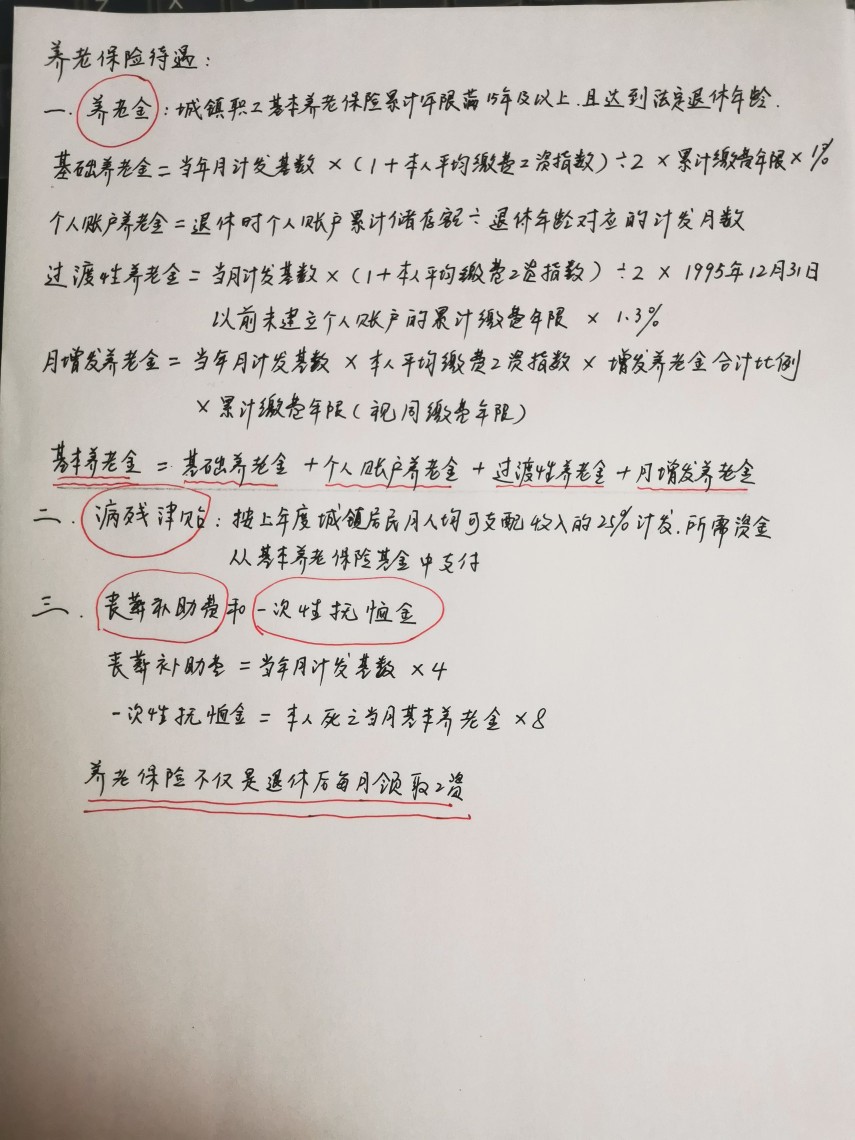 养老保险待遇:
一. 养老金:城镇职工基本养老保险累计年限满15年及以上.且达到法定退休年龄.
基础养老金=当年月计发基数×(1+本人平均缴费工资指数)÷2×累计缴费年限×1%
个人账户养老金=退休时个人账户累计储存额÷退休年龄对应的计发月数
过渡性养老金=当月计发基数×(1+本人平均缴费工资指数)÷2×1995年12月31日
以前未建立个人账户的累计缴费年限×1.3%
月增发养老金=当年月计发基数×本人平均缴费工资指数×增发养老金合计比例
×累计缴费年限(视同缴费年限)
基本养老金=基础养老金+个人账户养老金+过渡性养老金+月增发养老金
二. 病残津贴:按上年度城镇居民月人均可支配收入的25%计发.所需资金
从基本养老保险基金中支付
三. 丧葬补助费和一次性抚恤金
丧葬补助费=当年月计发基数×4
一次性抚恤金=本人死亡当月基本养老金×8
养老保险不仅是退休后每月领取工资